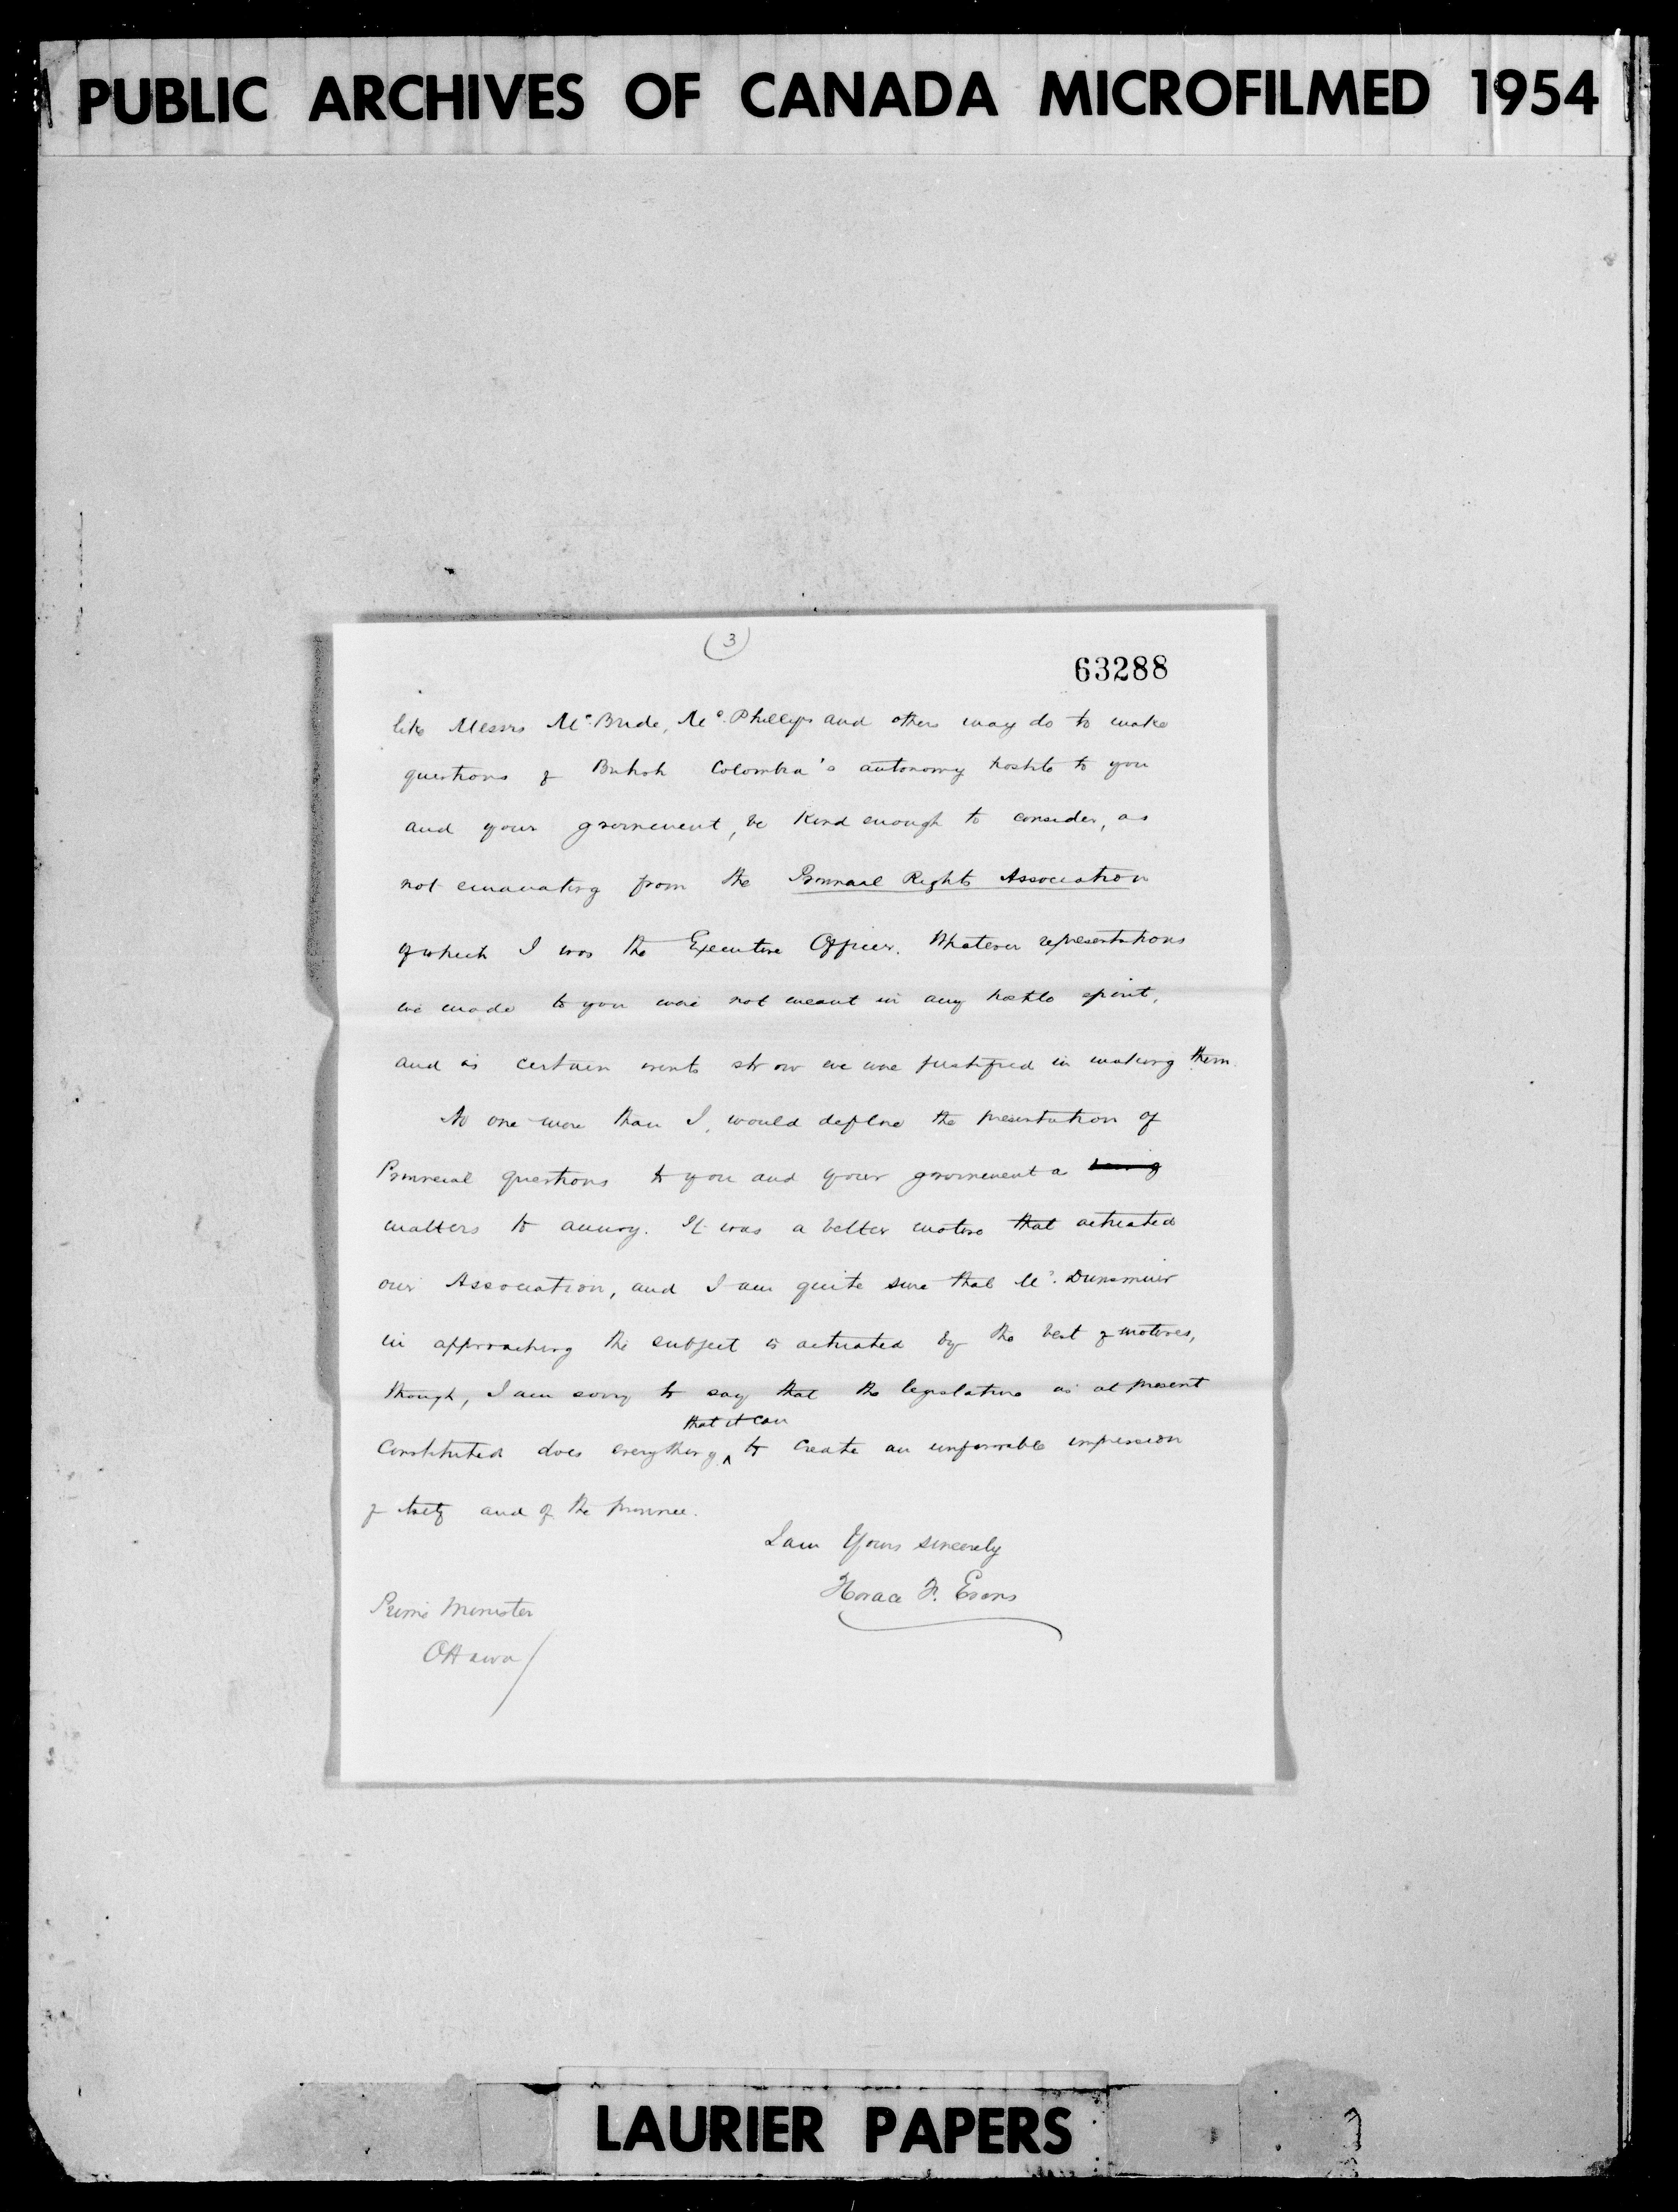 PUBLIC ARCHIVES OF CANADA MICROFILMED 1954
(3)
63288
like Messrs McBride, McPhillips and others may do to make
questions of British Columbia's autonomy hostile to you
and your government, be kind enough to consider, as
not emanating from the Provincial Rights Association
of which I was the Executive Officer. Whatever representations
we made to you were not meant in any hostile spirit,
and as certain events show we were justified in making them.
No one more than I, would deplore the presentation of
Provincial questions to you and your government as being
matters to annoy. It was a better motive that actuated
our Association, and I am quite sure that Mr. Dunsmuir
in approaching the subject is actuated by the best of motives,
though, I am sorry to say that the legislature as at present
that it can
Constituted does everything ^ to create an unfavorable impression
of itself and of the province.
I am Yours sincerely
Horace F. Evans
Prime Minister
Ottawa/
LAURIER PAPERS